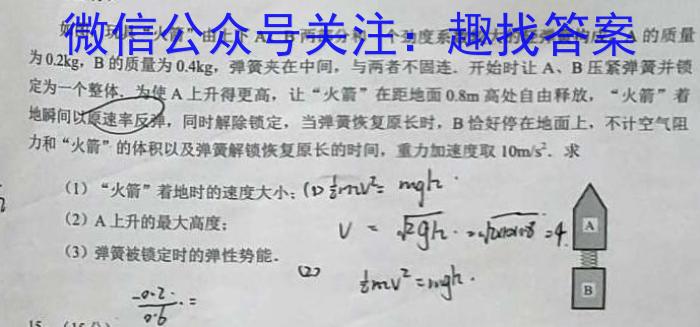 微信公众号关注：趣找答案
的质量
为0.2kg，B的质量为0.4kg，弹簧夹在中间，与两者不固连．开始时让A、B压紧弹簧并锁
定为一个整体．为使A上升得更高，让“火箭”在距地面0.8m高处自由释放，“火箭”着
地瞬间以原速率反弹，同时解除锁定，当弹簧恢复原长时，B恰好停在地面上，不计空气阻
力和“火箭”的体积以及弹簧解锁恢复原长的时间，重力加速度取10m/s²．求
（1）“火箭”着地时的速度大小；(1) ½mv²= mgh．
（2）A上升的最大高度；
V = √2gh．=√2×10×0.8 =4
（3）弹簧被锁定时的弹性势能．
(2)
½mv²=mgh．
A
B
0.2
0.6 =